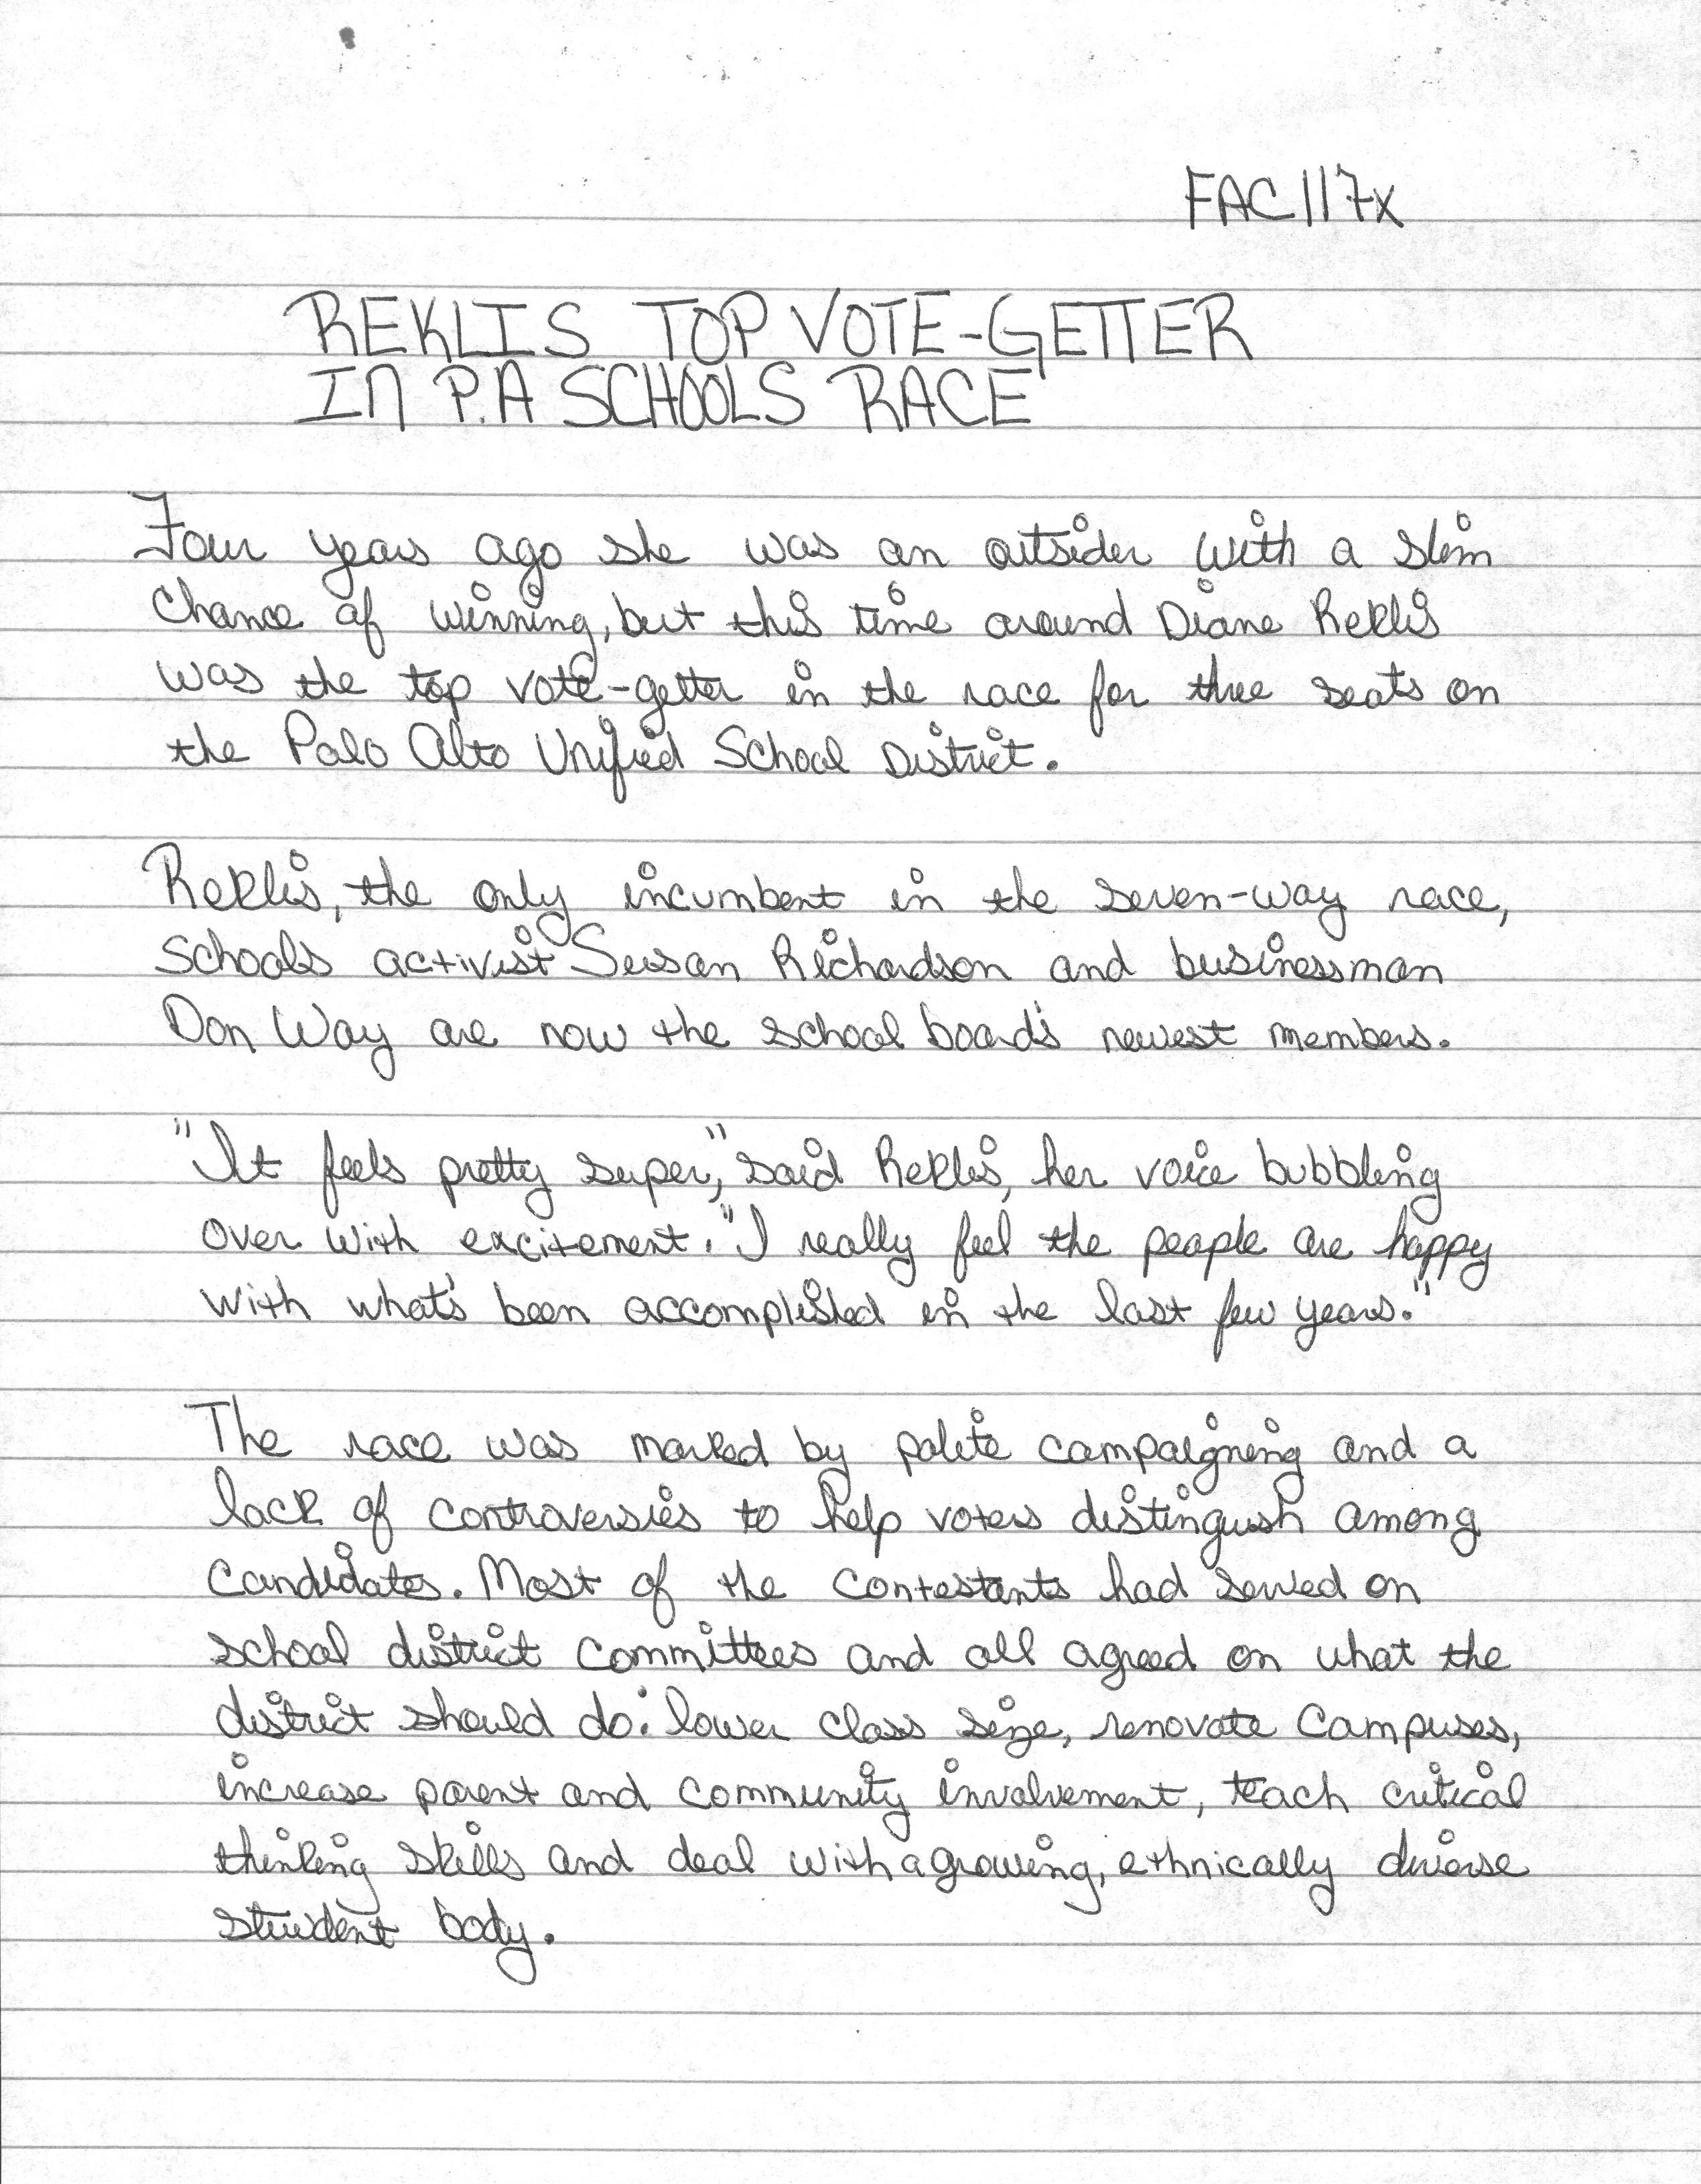 FAC117x
REKLIS TOP VOTE-GETTER
IN P.A SCHOOLS RACE
Four years ago she was an outsider with a slim
chance of winning, but this time around Diane Reklis
was the top vote-getter in the race for three seats on
the Palo Alto Unified School District.
Reklis, the only incumbent in the seven-way race,
schools activist Susan Richardson and businessman
Don Way are now the school board's newest members.
"It feels pretty super," said Reklis, her voice bubbling
over with excitement. "I really feel the people are happy
with what's been accomplished in the last few years."
The race was marked by polite campaigning and a
lack of controversies to help voters distinguish among
candidates. Most of the contestants had served on
school district committees and all agreed on what the
district should do: lower class size, renovate campuses,
increase parent and community involvement, teach critical
thinking skills and deal with a growing, ethnically diverse
student body.